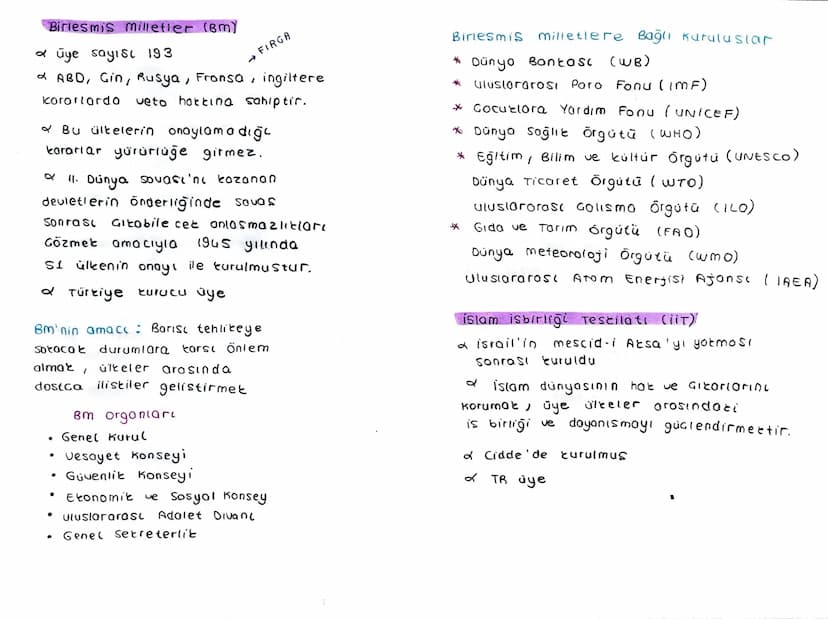 Birleşmiş Milletler (BM)
α üye sayısı 193
→ FIRÇA
α ABD, Çin, Rusya, Fransa, ingiltere
kararlarda veto hakkına sahiptir.
α Bu ülkelerin onaylamadığı
kararlar yürürlüğe girmez.
α II. Dünya savaşı'nı kazanan
devletlerin önderliğinde savaş
sonrası çıkabilecek anlaşmazlıkları
çözmek amacıyla 1945 yılında
51 ülkenin onayı ile kurulmuştur.
α Türkiye kurucu üye
BM'nin amacı : Barışı tehlikeye
sokacak durumlara karşı önlem
almak, ülkeler arasında
dostça ilişkiler geliştirmek
BM organları
• Genel Kurul
• Vesayet Konseyi
• Güvenlik Konseyi
• Ekonomik ve Sosyal Konsey
• Uluslararası Adalet Divanı
• Genel Sekreterlik
Birleşmiş milletlere Bağlı Kuruluşlar
* Dünya Bankası (WB)
* Uluslararası Para Fonu (IMF)
* Çocuklara Yardım Fonu (UNICEF)
* Dünya Sağlık Örgütü (WHO)
* Eğitim, Bilim ve kültür Örgütü (UNESCO)
Dünya Ticaret Örgütü (WTO)
Uluslararası Çalışma Örgütü (ILO)
* Gıda ve Tarım Örgütü (FAO)
Dünya Meteoroloji Örgütü (WMO)
Uluslararası Atom Enerjisi Ajansı (IAEA)
İslam işbirliği Teşkilatı (İİT)
α İsrail'in mescid-i Aksa'yı yakması
sonrası kuruldu
α İslam dünyasının hak ve çıkarlarını
korumak, üye ülkeler arasındaki
iş birliği ve dayanışmayı güçlendirmektir.
α Cidde'de kurulmuş
α TR üye